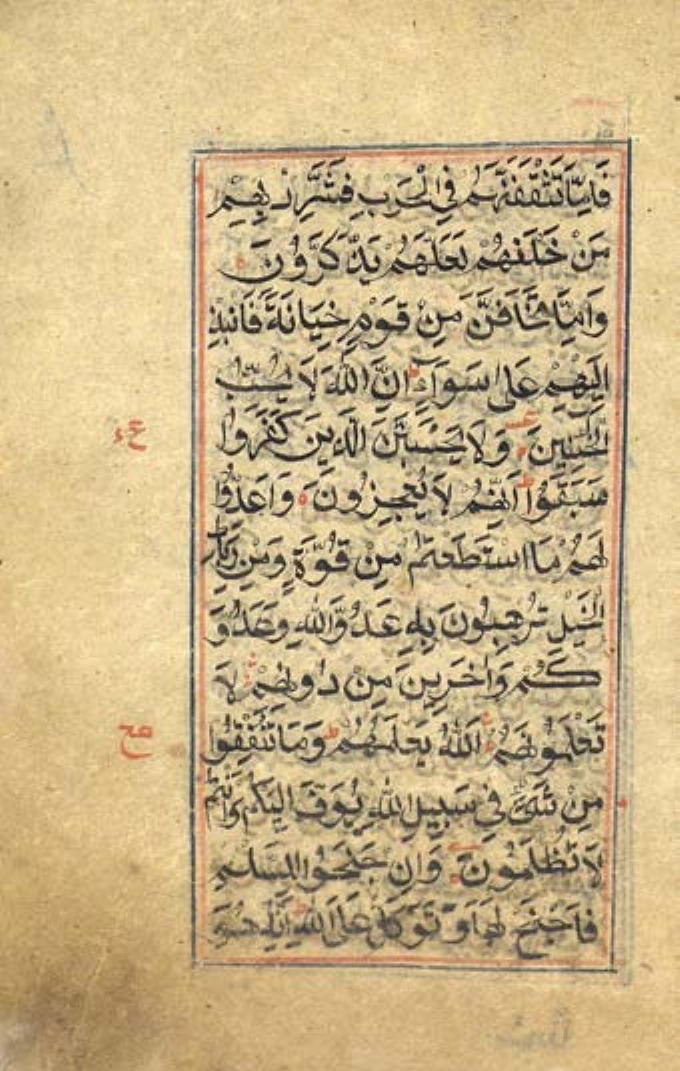 فَاِمَّا تَثْقَفَنَّهُمْ فِي الْحَرْبِ فَشَرِّدْ بِهِمْ
مَنْ خَلْفَهُمْ لَعَلَّهُمْ يَذَّكَّرُونَ
وَاِمَّا تَخَافَنَّ مِنْ قَوْمٍ خِيَانَةً فَانْبِذْ
اِلَيْهِمْ عَلٰى سَوَآءٍ اِنَّ اللّٰهَ لَا يُحِبُّ
الْخَآئِنِينَ وَلَا يَحْسَبَنَّ الَّذِينَ كَفَرُوا
سَبَقُوا اِنَّهُمْ لَا يُعْجِزُونَ وَاَعِدُّوا
لَهُمْ مَا اسْتَطَعْتُمْ مِنْ قُوَّةٍ وَمِنْ رِبَاطِ
الْخَيْلِ تُرْهِبُونَ بِهِ عَدُوَّ اللّٰهِ وَعَدُوَّ
كُمْ وَاٰخَرِينَ مِنْ دُونِهِمْ لَا
تَعْلَمُونَهُمْ اَللّٰهُ يَعْلَمُهُمْ وَمَا تُنْفِقُوا
مِنْ شَيْءٍ فِي سَبِيلِ اللّٰهِ يُوَفَّ اِلَيْكُمْ وَاَنْتُمْ
لَا تُظْلَمُونَ وَاِنْ جَنَحُوا لِلسَّلْمِ
فَاجْنَحْ لَهَا وَتَوَكَّلْ عَلَى اللّٰهِ اِنَّهُ هُوَ